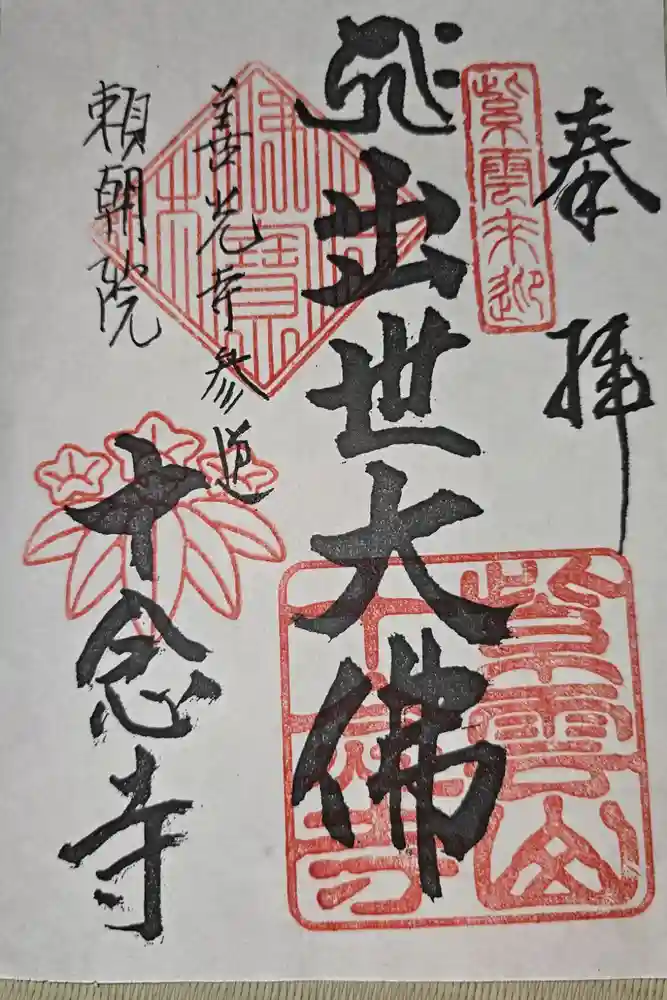 奉拝
紫雲来迎
出世大佛
紫雲山
十念寺
善光寺参道
頼朝院
十念寺